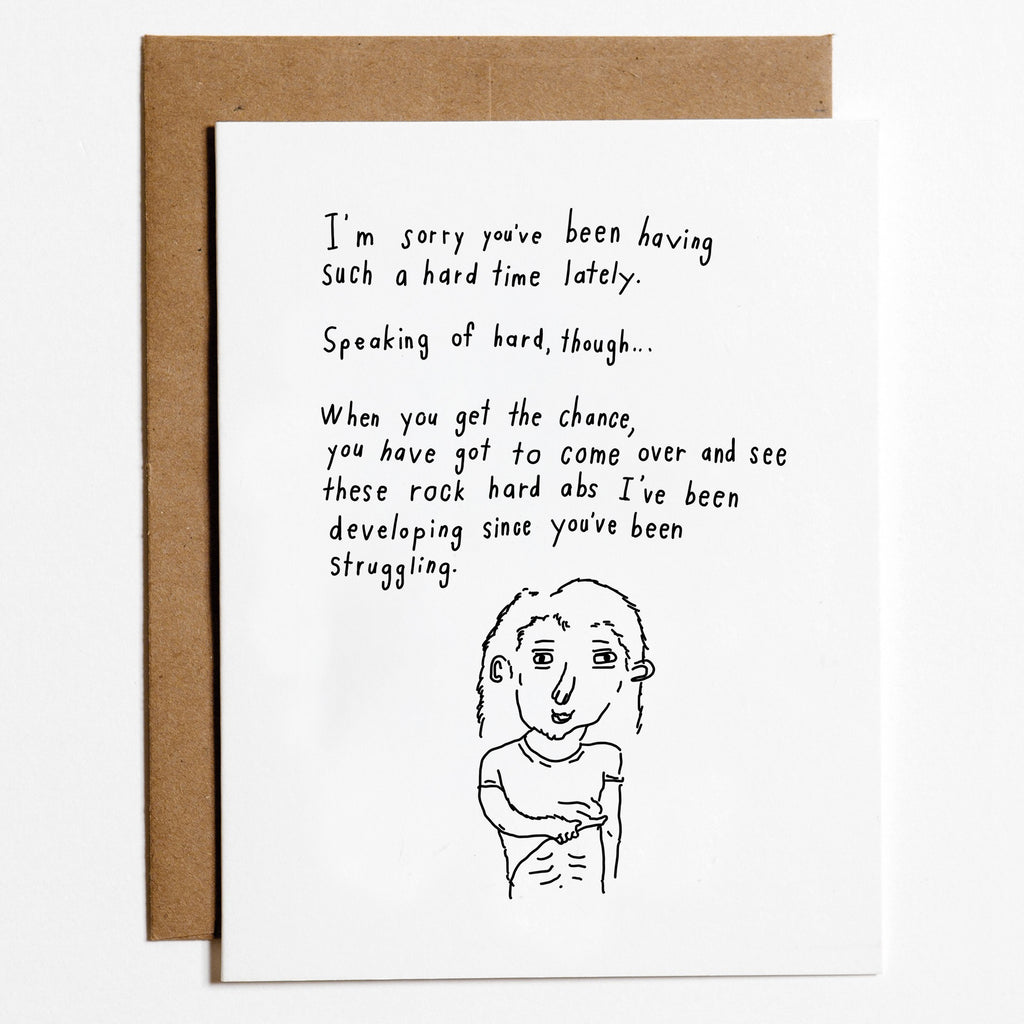 I'm sorry you've been having
such a hard time lately.
Speaking of hard, though...
When you get the chance,
you have got to come over and see
these rock hard abs I've been
developing since you've been
struggling.